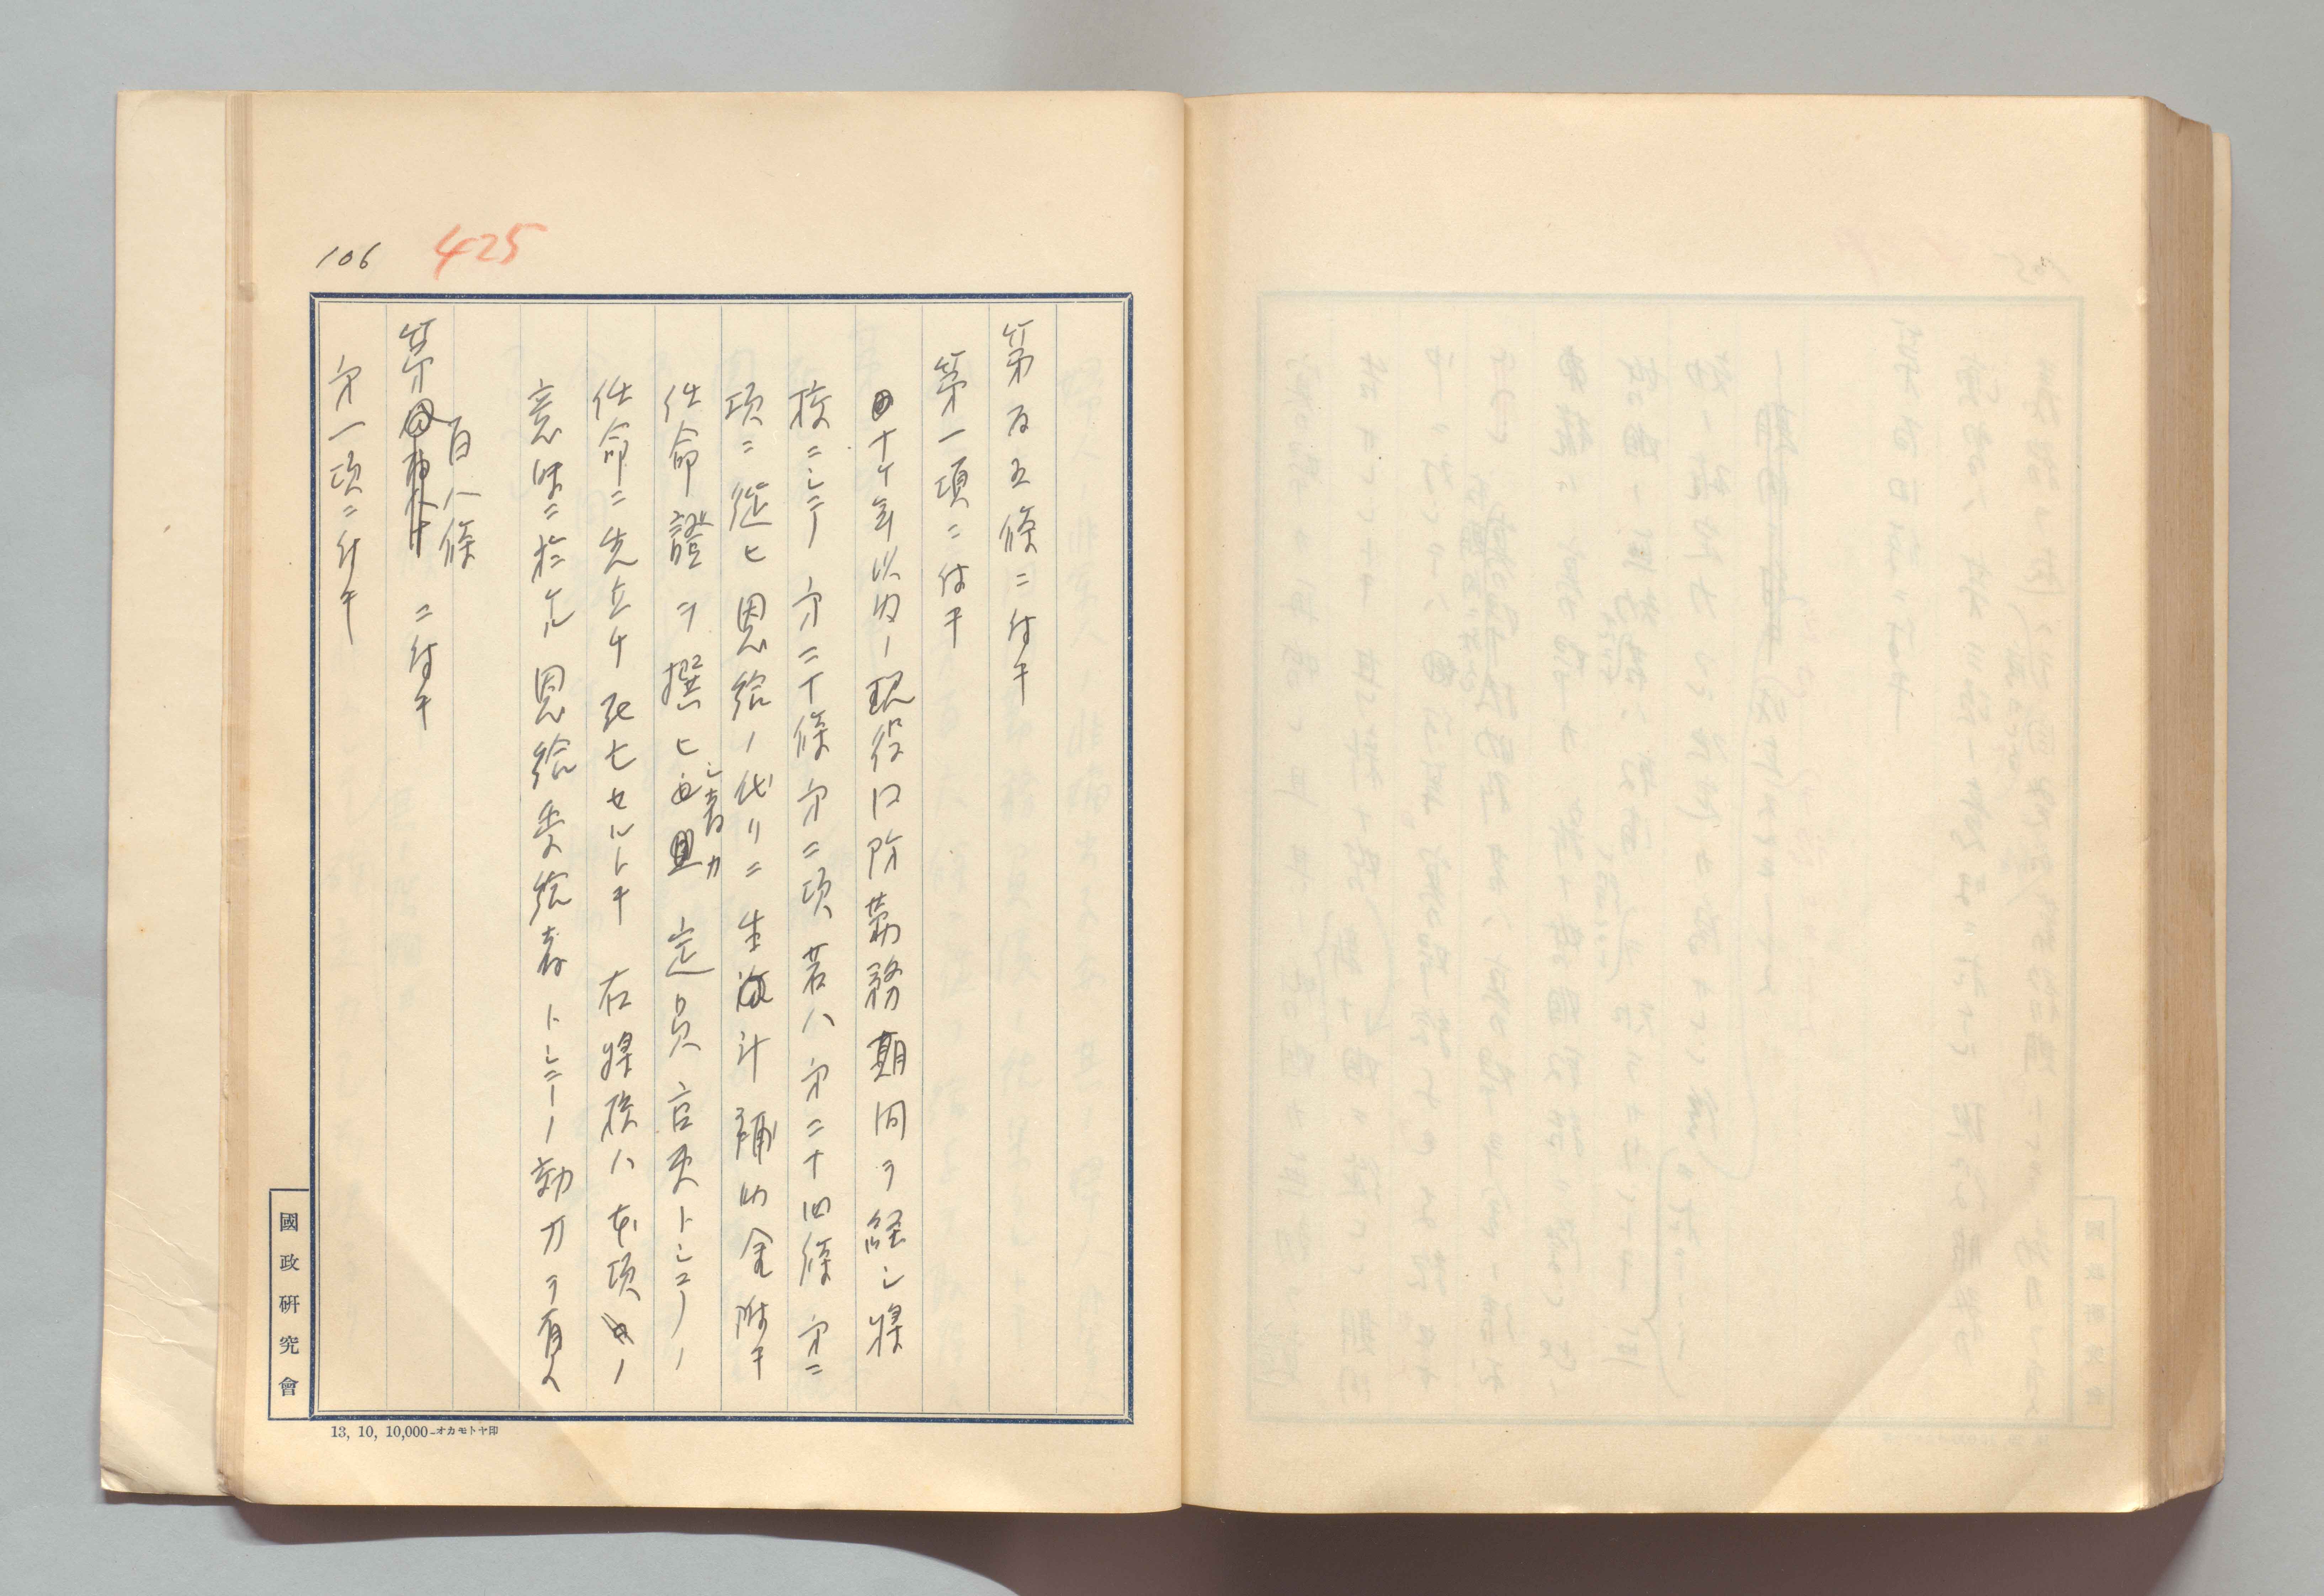 106
425
第百五條ニ付テ
第一項ニ付テ
十ケ年以内ノ現役口防勤務期間ヲ経シ将
校ニシテ第二十條第二項若ハ第二十四條第二
項ニ従ヒ恩給ノ代リニ生計補助金附テ
任命證ヲ撰ヒシ者カ定員官吏トシテノ
任命ニ先立チ死亡セルトキ右将校ハ本項ノ
意味ニ於ケル恩給受給者トシテノ効力ヲ有ス
第百八條ニ付テ
第一項ニ付テ
國政研究會
13, 10, 10,000–オカモトヤ印